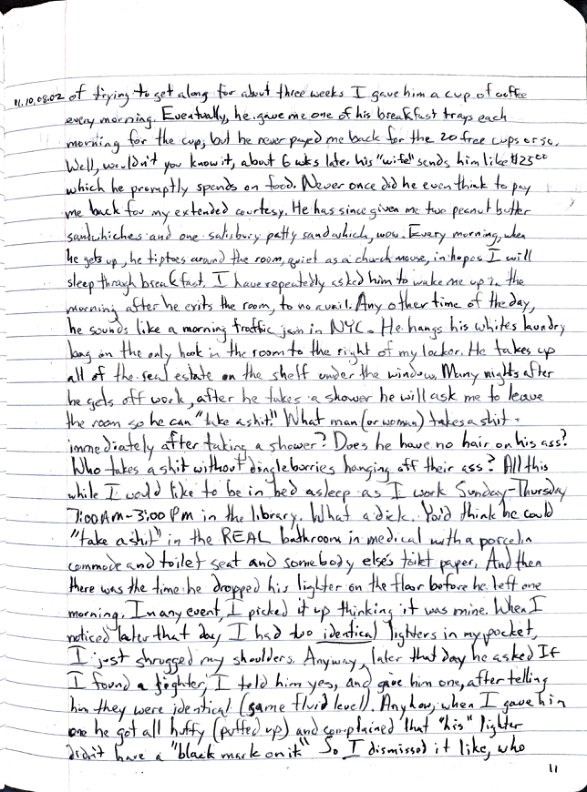 11.10.08.02 of trying to get along for about three weeks I gave him a cup of coffee
every morning. Eventually, he gave me one of his breakfast trays each
morning for the cup, but he never payed me back for the 20 free cups or so.
Well, wouldn't you know it, about 6 wks later his "wife" sends him like $25.00
which he promptly spends on food. Never once did he even think to pay
me back for my extended courtesy. He has since given me two peanut butter
sandwhiches and one salisbury patty sandwhich, wow. Every morning, when
he gets up, he tiptoes around the room, quiet as a church mouse, in hopes I will
sleep through breakfast. I have repeatedly asked him to wake me up in the
morning after he exits the room, to no avail. Any other time of the day,
he sounds like a morning traffic jam in NYC. He hangs his whites laundry
bag on the only hook in the room to the right of my locker. He takes up
all of the real estate on the shelf under the window. Many nights after
he gets off work, after he takes a shower he will ask me to leave
the room so he can "take a shit." What man (or woman) takes a shit
immediately after taking a shower? Does he have no hair on his ass?
Who takes a shit without dingleborries hanging off their ass? All this
while I would like to be in bed asleep as I work Sunday-Thursday
7:00AM-3:00PM in the library. What a dick. You'd think he could
"take a shit" in the REAL bathroom in medical with a porcelin
commode and toilet seat and somebody else's toilet paper. And then
there was the time he dropped his lighter on the floor before he left one
morning. In any event, I picked it up thinking it was mine. When I
noticed later that day I had two identical lighters in my pocket,
I just shrugged my shoulders. Anyway, later that day he asked If
I found a lighter, I told him yes, and gave him one, after telling
him they were identical (same fluid level). Anyhow, when I gave him
one he got all huffy (puffed up) and complained that "his" lighter
didn't have a "black mark on it." So I dismissed it like, who
11